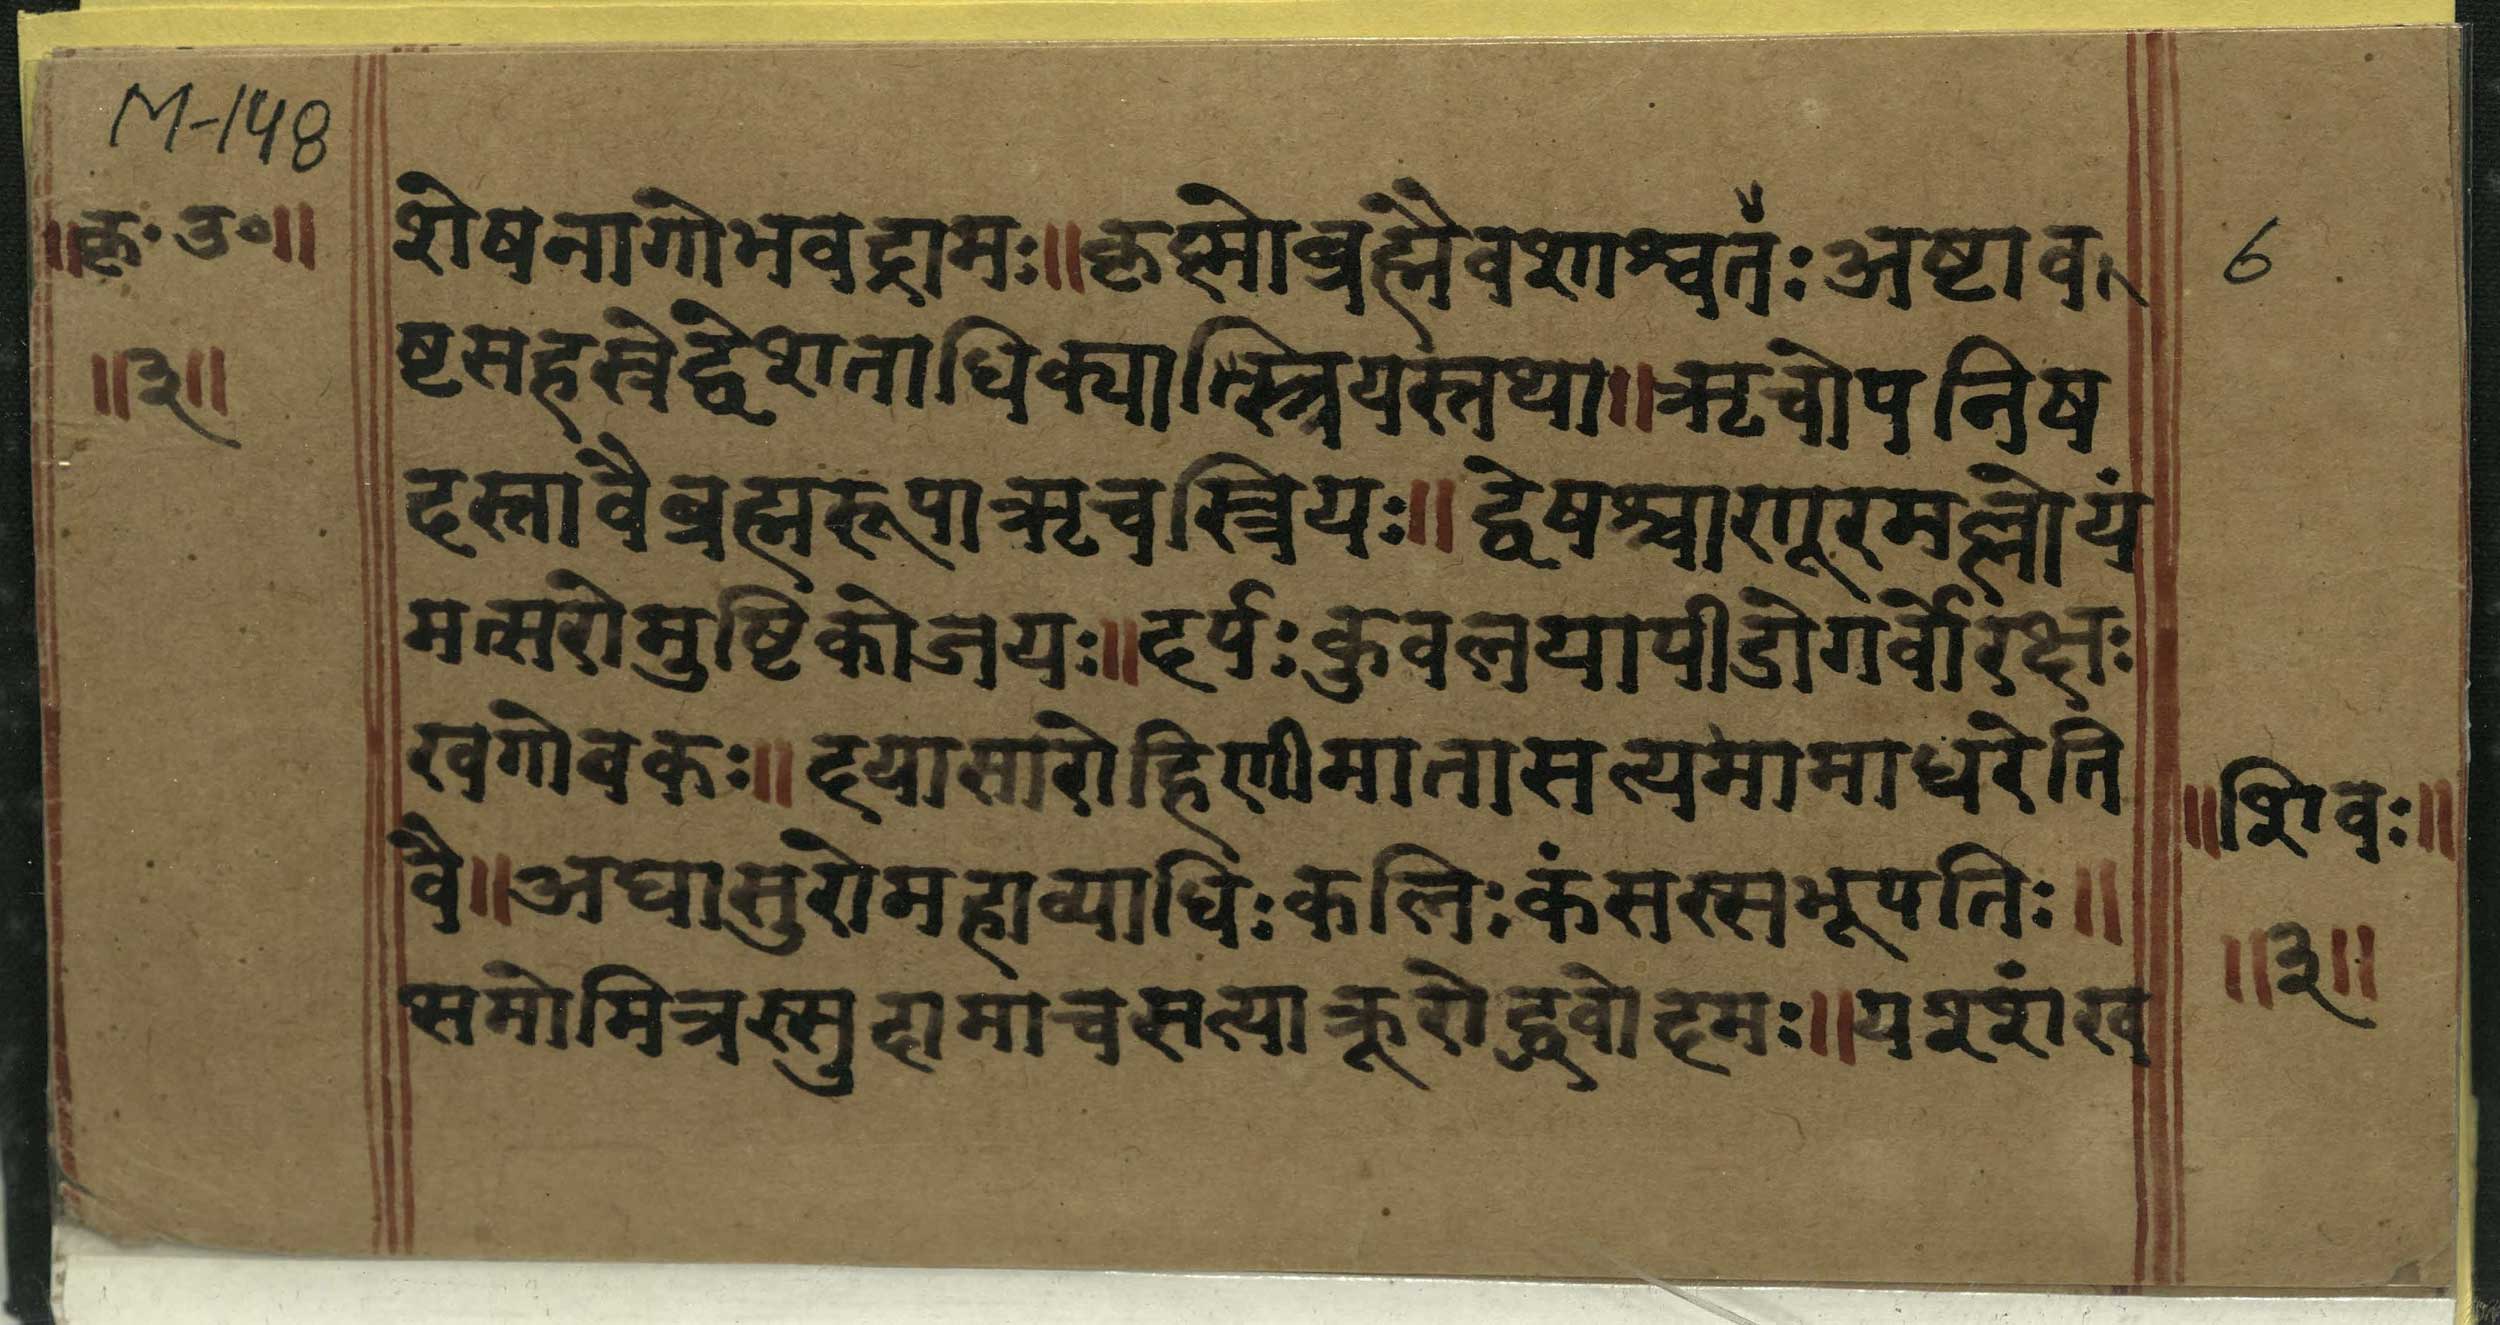 M-148
॥कृ॰उ॰॥
॥३॥
शेषनागोभवद्रामः॥कृष्णोब्रह्मैवशाश्वतः अष्टाव
ष्टसहस्रेद्वेशताधिक्यास्त्रियस्तथा॥ऋचोपनिष
दस्तावैब्रह्मरूपाऋचस्त्रियः॥द्वेषश्चाणूरमल्लोयं
मत्सरोमुष्टिकोजयः॥दर्पःकुवलयापीडोगर्वोरक्षः
खगोबकः॥दयासारोहिणीमातासत्यमामाधरेति
वै॥अघासुरोमहाव्याधिःकलिःकंसस्सभूपतिः॥
समोमित्रस्सुदामाचसत्याक्रूरोद्धवोदमः॥यश्शंख
6
॥शिवः॥
॥३॥